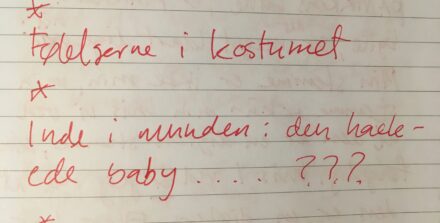 *
Fødelserne i kostumet
*
Inde i munden: den hacke-
ede baby ..... ???
*